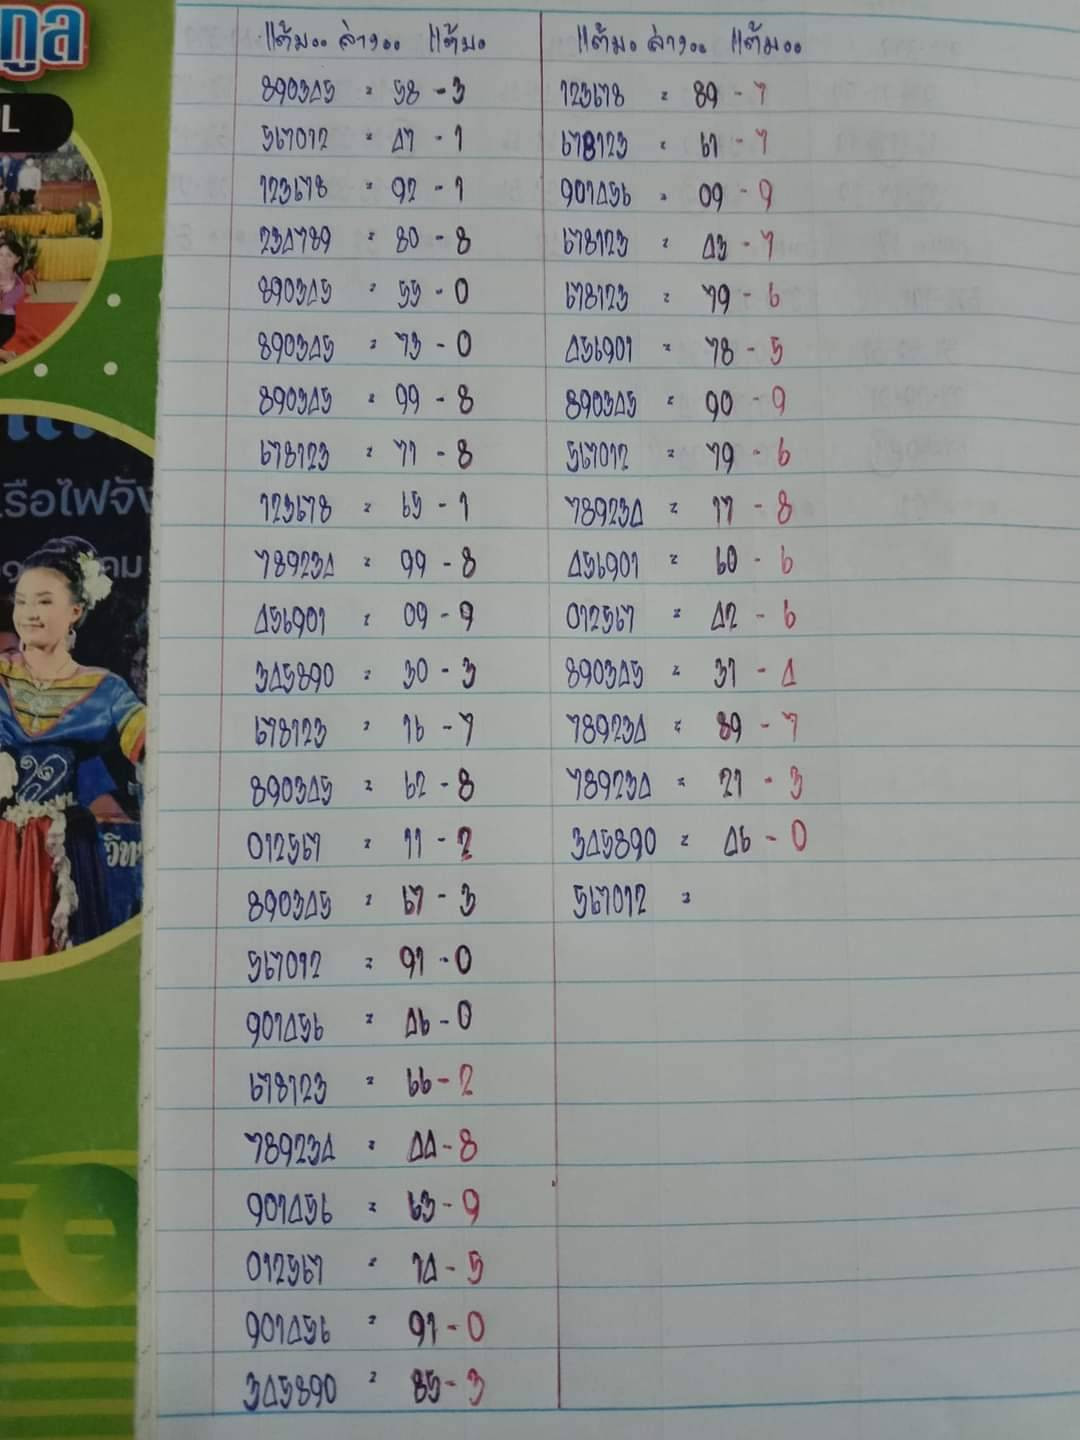 กูล
L
รือไฟจัง
คม
วิท
แต้ม.. ล่าง.. แต้ม.
890345 = 58 - 3
567012 = 47 - 1
123678 = 92 - 1
234789 = 80 - 8
890345 = 55 - 0
890345 = 73 - 0
890345 = 99 - 8
678123 = 71 - 8
123678 = 65 - 1
789234 = 99 - 8
456901 = 09 - 9
345890 = 30 - 3
678123 = 16 - 7
890345 = 62 - 8
012567 = 11 - 2
890345 = 67 - 3
567012 = 91 - 0
901456 = 46 - 0
678123 = 66 - 2
789234 = 44 - 8
901456 = 63 - 9
012567 = 14 - 5
901456 = 91 - 0
345890 = 85 - 3
แต้ม. ล่าง.. แต้ม..
123678 = 89 - 7
678123 = 61 - 7
901456 = 09 - 9
678123 = 43 - 7
678123 = 79 - 6
456901 = 78 - 5
890345 = 90 - 9
567012 = 79 - 6
789234 = 17 - 8
456901 = 60 - 6
012567 = 42 - 6
890345 = 31 - 4
789234 = 89 - 7
789234 = 21 - 3
345890 = 46 - 0
567012 =